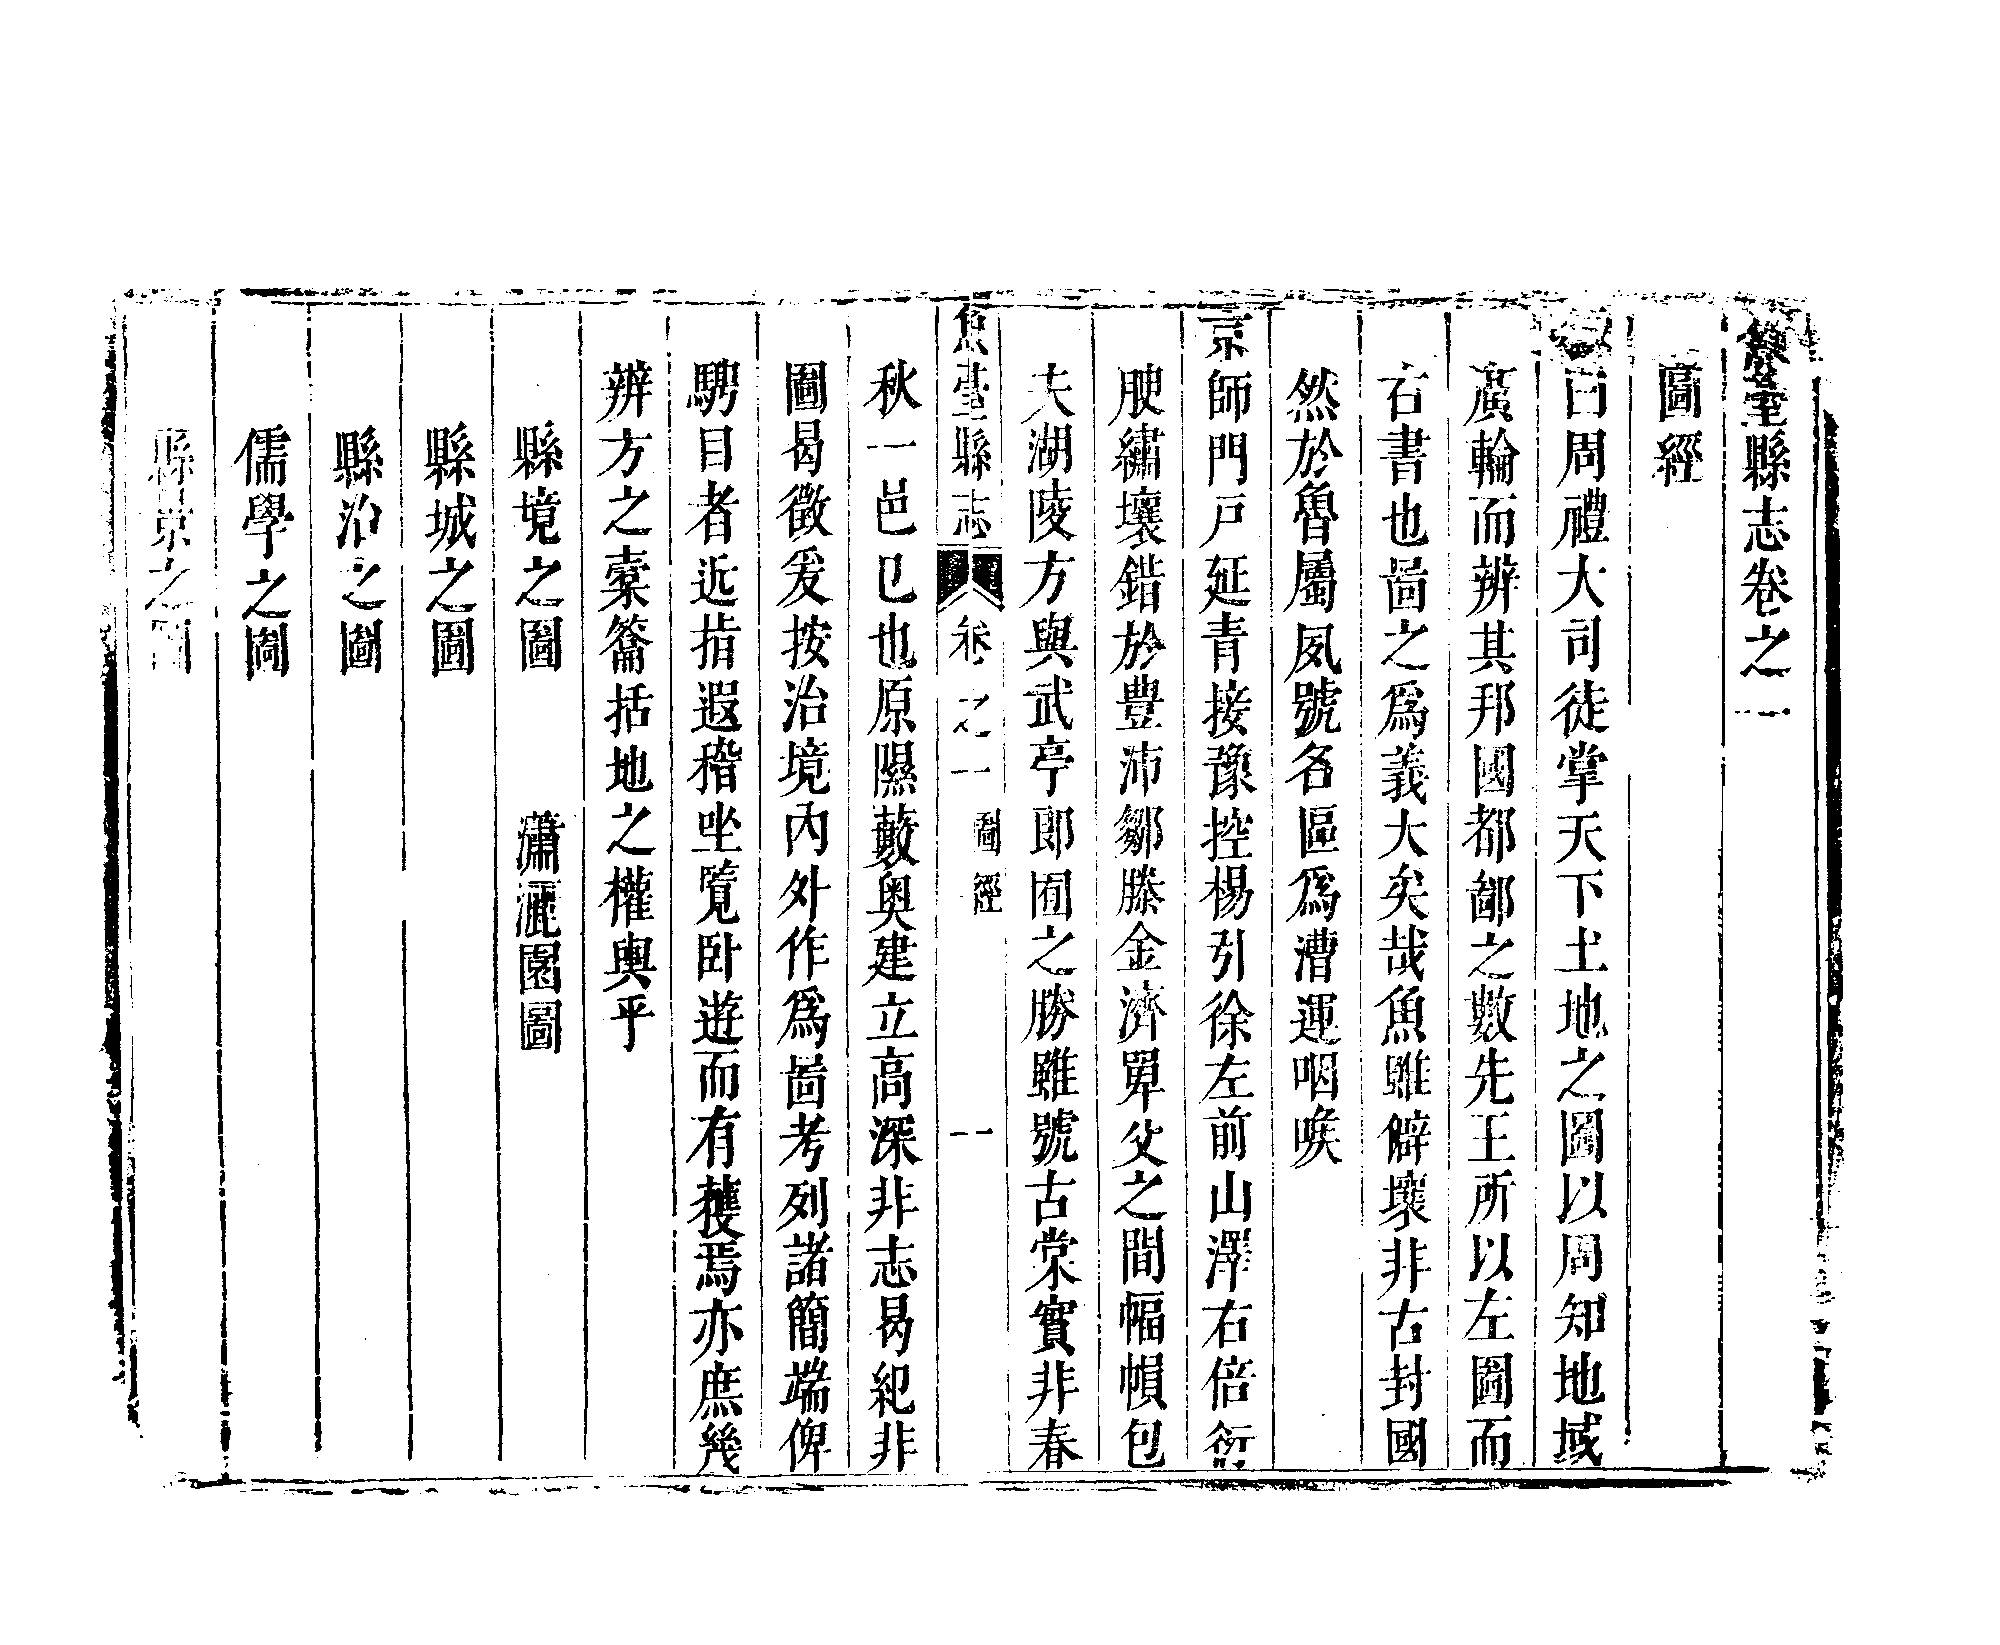 魚臺縣志卷之一
圖經
曰周禮大司徒掌天下土地之圖以周知地域
廣輪而辨其邦國都鄙之數先王所以左圖而
右書也啚之爲義大矣哉魚雖僻壤非古封國
然於魯屬夙號名區爲漕運咽喉
京師門戸延青接豫控楊引徐左前山澤右倍
腴繡壤錯於豊沛鄒滕金濟單父之間幅幀包
夫湖陵方與武亭郎囿之勝雖號古棠實非春
魚臺縣志 卷之一 圖經 一
秋一邑已也原隰藪奥建立高深非志曷紀非
圖曷徵爰按治境內外作爲啚考列諸簡端俾
騁目者近指遐稽坐覧卧遊而有获焉亦庶幾
辨方之橐籥括地之權輿乎
縣境之圖 瀟灑園圖
縣城之圖
縣治之圖
儒學之圖
縣景之圖